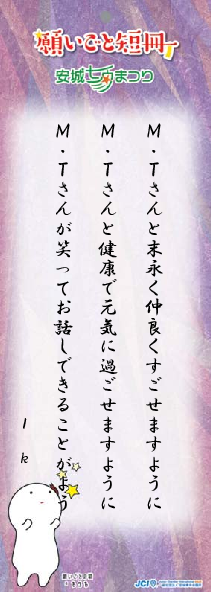 願いごと短冊
安城七夕まつり
M・Tさんと末永く仲良くすごせますように
M・Tさんと健康で元気に過ごせますように
M・Tさんが笑ってお話しできることがよう
I k
JCI